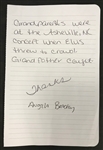 Grandparents were
at the Asheville, NC
Concert when Elvis
threw to crowd.
Grandfather caught
Thanks
Angela